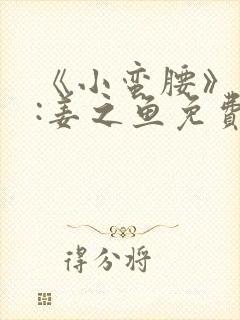 《小蛮腰》
:姜之鱼免費
得分将